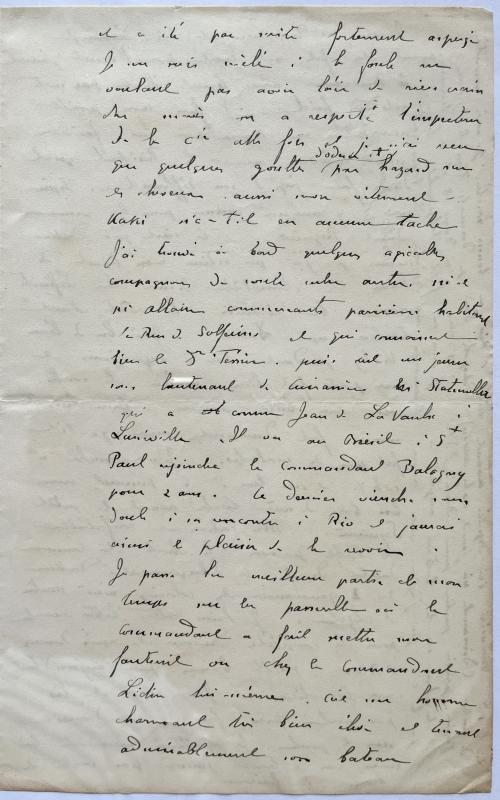 et a été par suite fortement aspergé
Je me suis mêlé à la foule ne
voulant pas avoir l'air de rien craindre
du moins on a respecté l'inspecteur
de la Cie cette fois et je n'ai reçu
que quelques gouttes d'eau par hazard sur
les cheveux aussi mon vêtement
Kaki n'a-t-il eu aucune tache
J'ai trouvé à bord quelques agréables
compagnons de route entre autres
allain commerçants parisiens habitant
la Rue de Solférino et qui connaissent
bien le Dr Tessier puis un jeune
sous lieutenant de cuirassiers
qui a connu Jean de La Vaulx à
Lunéville. Il va au Brésil à St
Paul rejoindre le Commandant Balagny
pour 2 ans. Ce dernier viendra sans
doute à sa rencontre à Rio et j'aurai
ainsi le plaisir de le revoir.
Je passe la meilleure partie de mon
temps sur la passerelle où le
Commandant a fait mettre mon
fauteuil ou chez le Commandant
Lidin lui-même. C'est un homme
charmant très bien élevé et tenant
admirablement son bateau